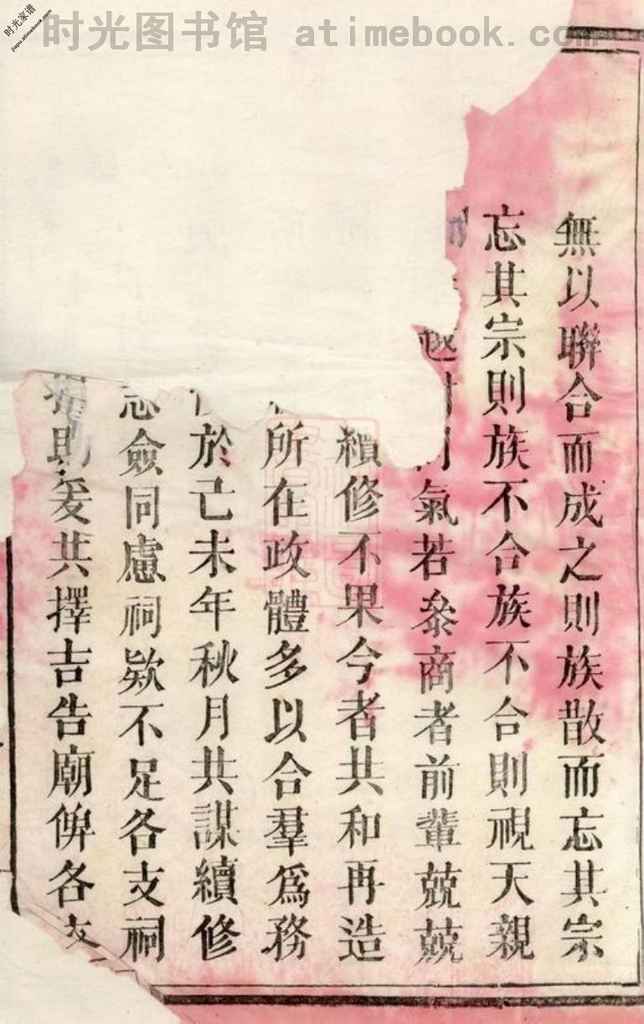 时光家谱
时光图书馆 atimebook.com
無以聯合而成之則族散而忘其宗
忘其宗則族不合族不合則視天親
氣若叅商者前輩兢兢
續修不果今者共和再造
所在政體多以合羣爲務
於己未年秋月共謀續修
僉同慮祠欵不足各支祠
助爰共擇吉告廟俾各支